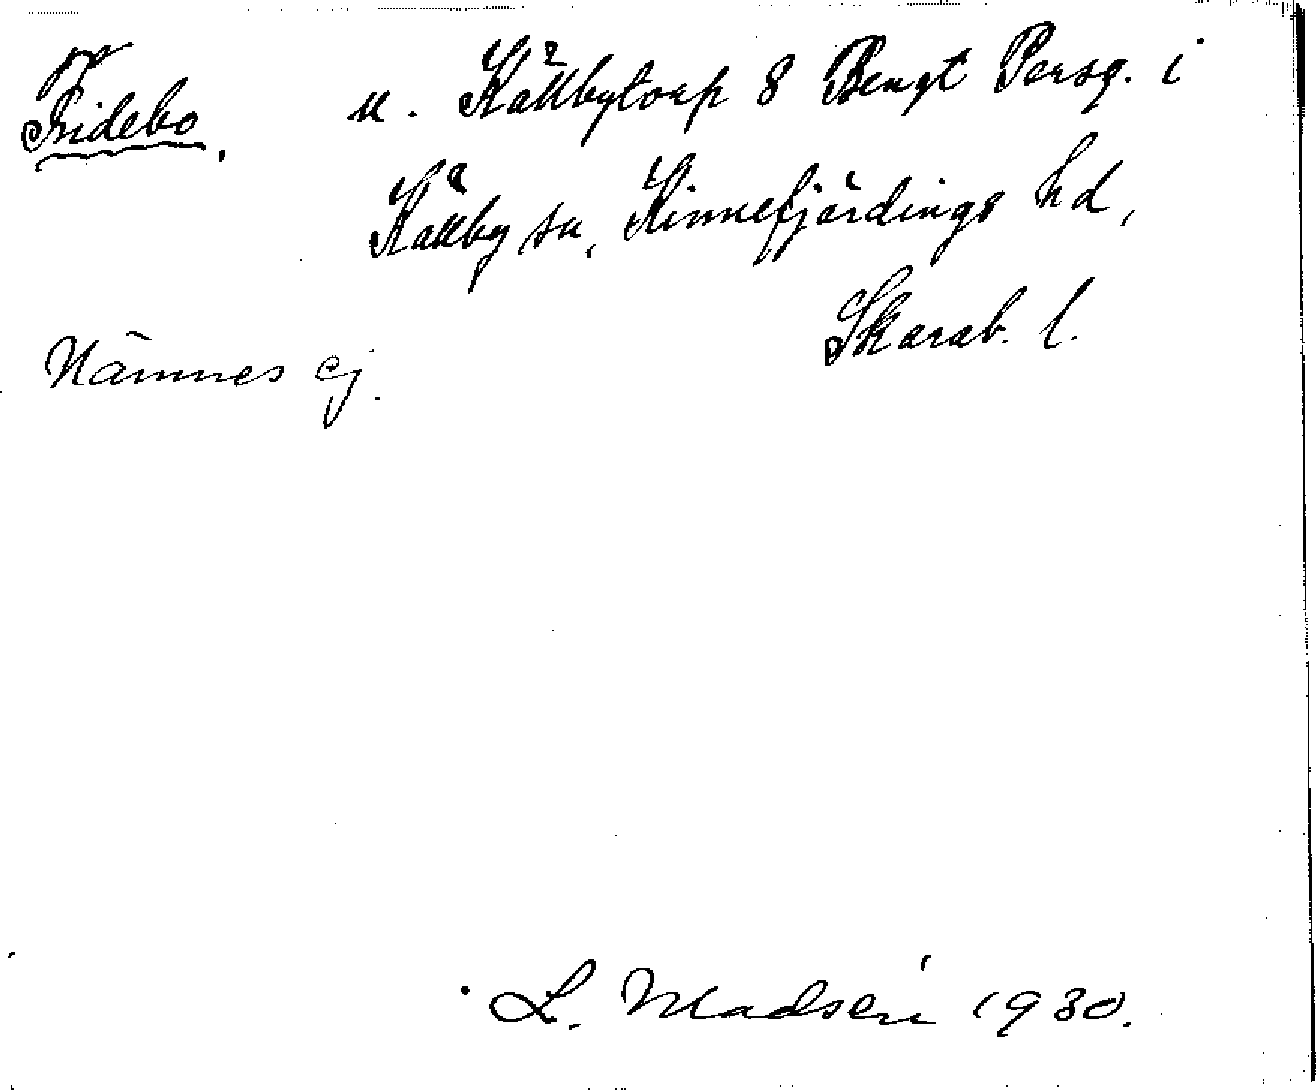 Fridebo. u. Källbytorp 8 Bengt Persg. i
Källby sn, Kinnefjärdings hd,
Skarab. l.
Nämnes ej.
L. Madsén 1930.